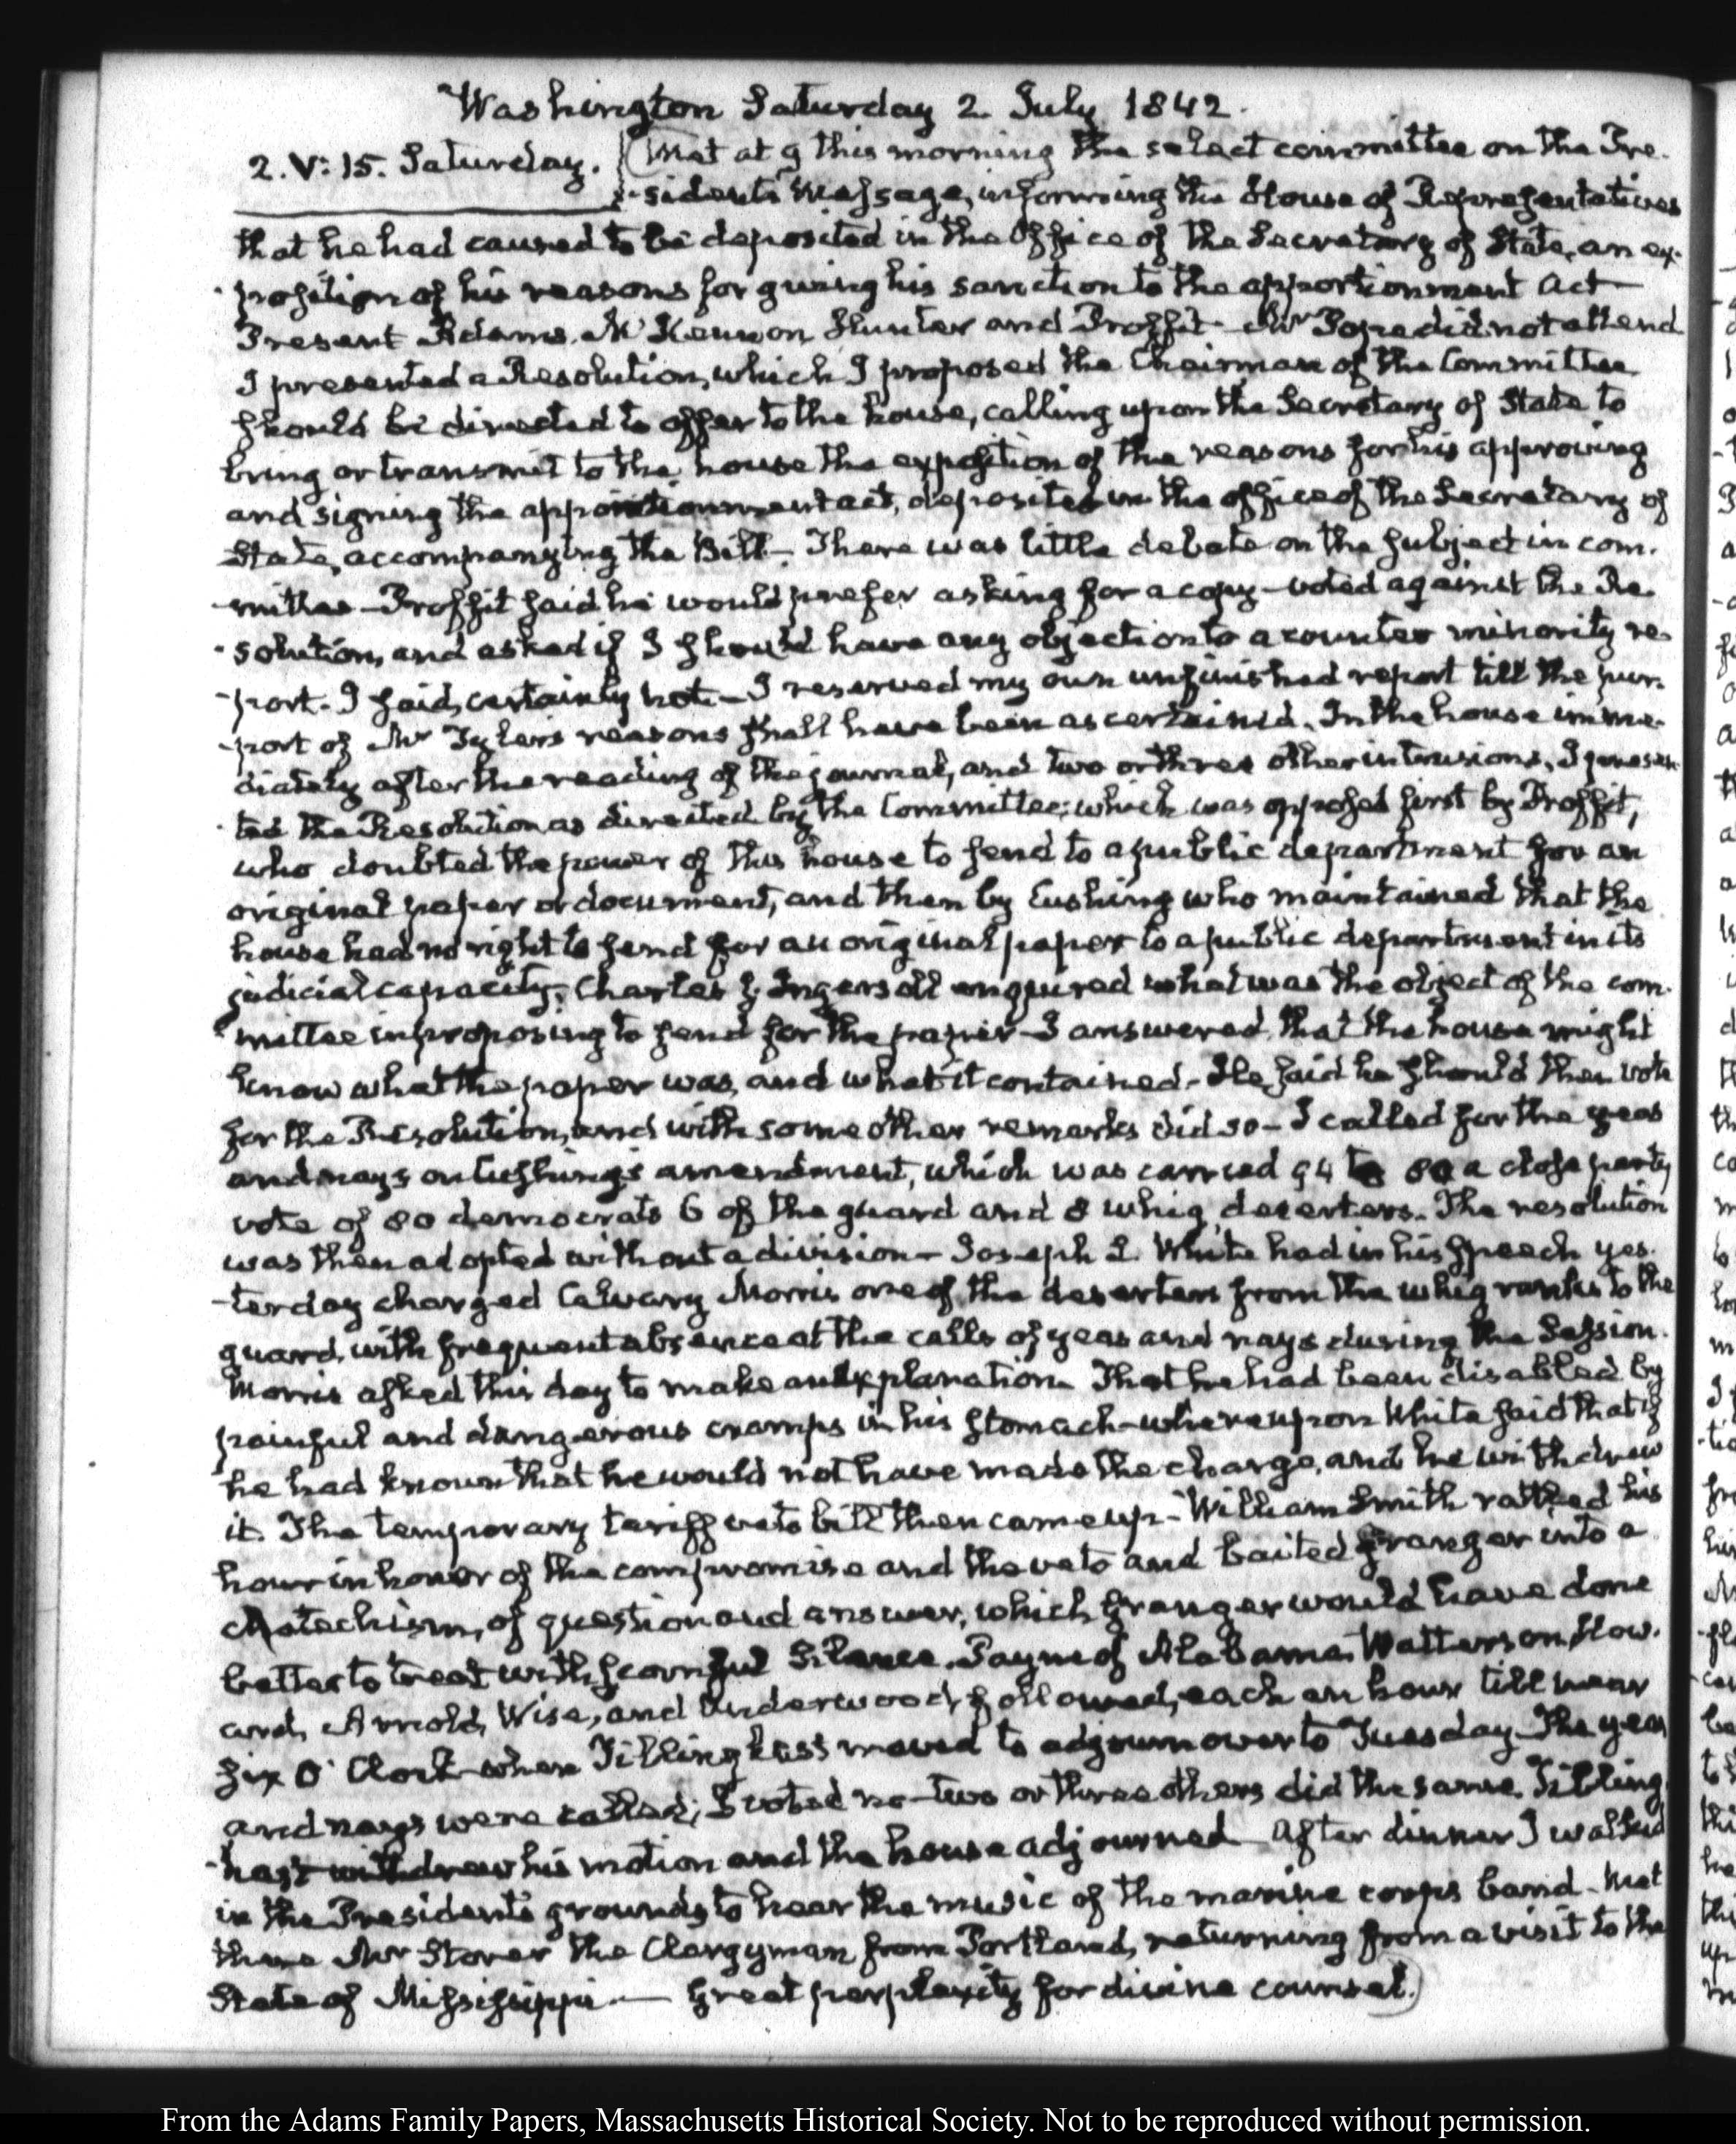 Washington Saturday 2. July 1842.
2. V: 15. Saturday. Met at 9 this morning the select committee on the Pre-
-sident's Message, informing the House of Representatives
that he had caused to be deposited in the Office of the Secretary of State, an ex-
-position of his reasons for giving his sanction to the apportionment Act
Present Adams. McKennon Hunter and Proffit. Mr Pope did not attend
I presented a Resolution, which I proposed the Chairman of the Committee
should be directed to offer to the house, calling upon the Secretary of State to
bring or transmit to the house the exposition of the reasons for his approving
and signing the apportionment act, deposited in the office of the Secretary of
State, accompanying the Bill. There was little debate on the subject in com-
-mittee – Proffit said he would prefer asking for a copy – voted against the Re-
-solution, and asked if I should have any objection to a counter minority re-
-port. I said, certainly not – I reserved my own unfinished report till the pur-
-port of Mr Tyler's reasons shall have been ascertained. In the house imme-
diately after the reading of the journal, and two or three other intrusions, I presen-
-ted the Resolution as directed by the Committee; which was opposed first by Proffit,
who doubted the power of this house to send to a public department for an
original paper or document, and then by Cushing who maintained that the
house had no right to send for an original paper to a public department in its
judicial capacity. Charles J. Ingersoll enquired what was the object of the com-
-mittee in proposing to send for the paper – I answered, that the house might
know what the paper was, and what it contained. He said he should then vote
for the Resolution, and with some other remarks did so – I called for the yeas
and nays on Cushing's amendment, which was carried 94 to 80 a close party
vote of 80 democrats 6 of the guard and 8 whig deserters. The resolution
was then adopted without a division – Joseph L. White had in his speech yes-
-terday charged Calvary Morris one of the deserters from the whig ranks to the
guard, with frequent absence at the calls of yeas and nays during the Session.
Morris asked this day to make an explanation. That he had been disabled by
painful and dangerous cramps in his stomach – whereupon White said that if
he had known that he would not have made the charge, and he withdrew
it. The temporary tariff veto bill then came up – William Smith talked his
hour in honor of the compromise and the veto and baited Granger into a
catechism, of question and answer, which Granger would have done
better to treat with scornful silence. Payne of Alabama. Watterson, How-
ard, Arnold, Wise, and Underwood followed, each an hour till near
six O'Clock when Tillinghast moved to adjourn over to Tuesday The yeas
and nays were called; I voted no – two or three others did the same. Tilling-
-hast withdrew his motion and the house adjourned – After dinner I walked
in the President's grounds to hear the music of the marine corps band – Met
there Mr Storer the Clergyman from Portland, returning from a visit to the
State of Mississippi. — Great perplexity for divine counsel.
From the Adams Family Papers, Massachusetts Historical Society. Not to be reproduced without permission.